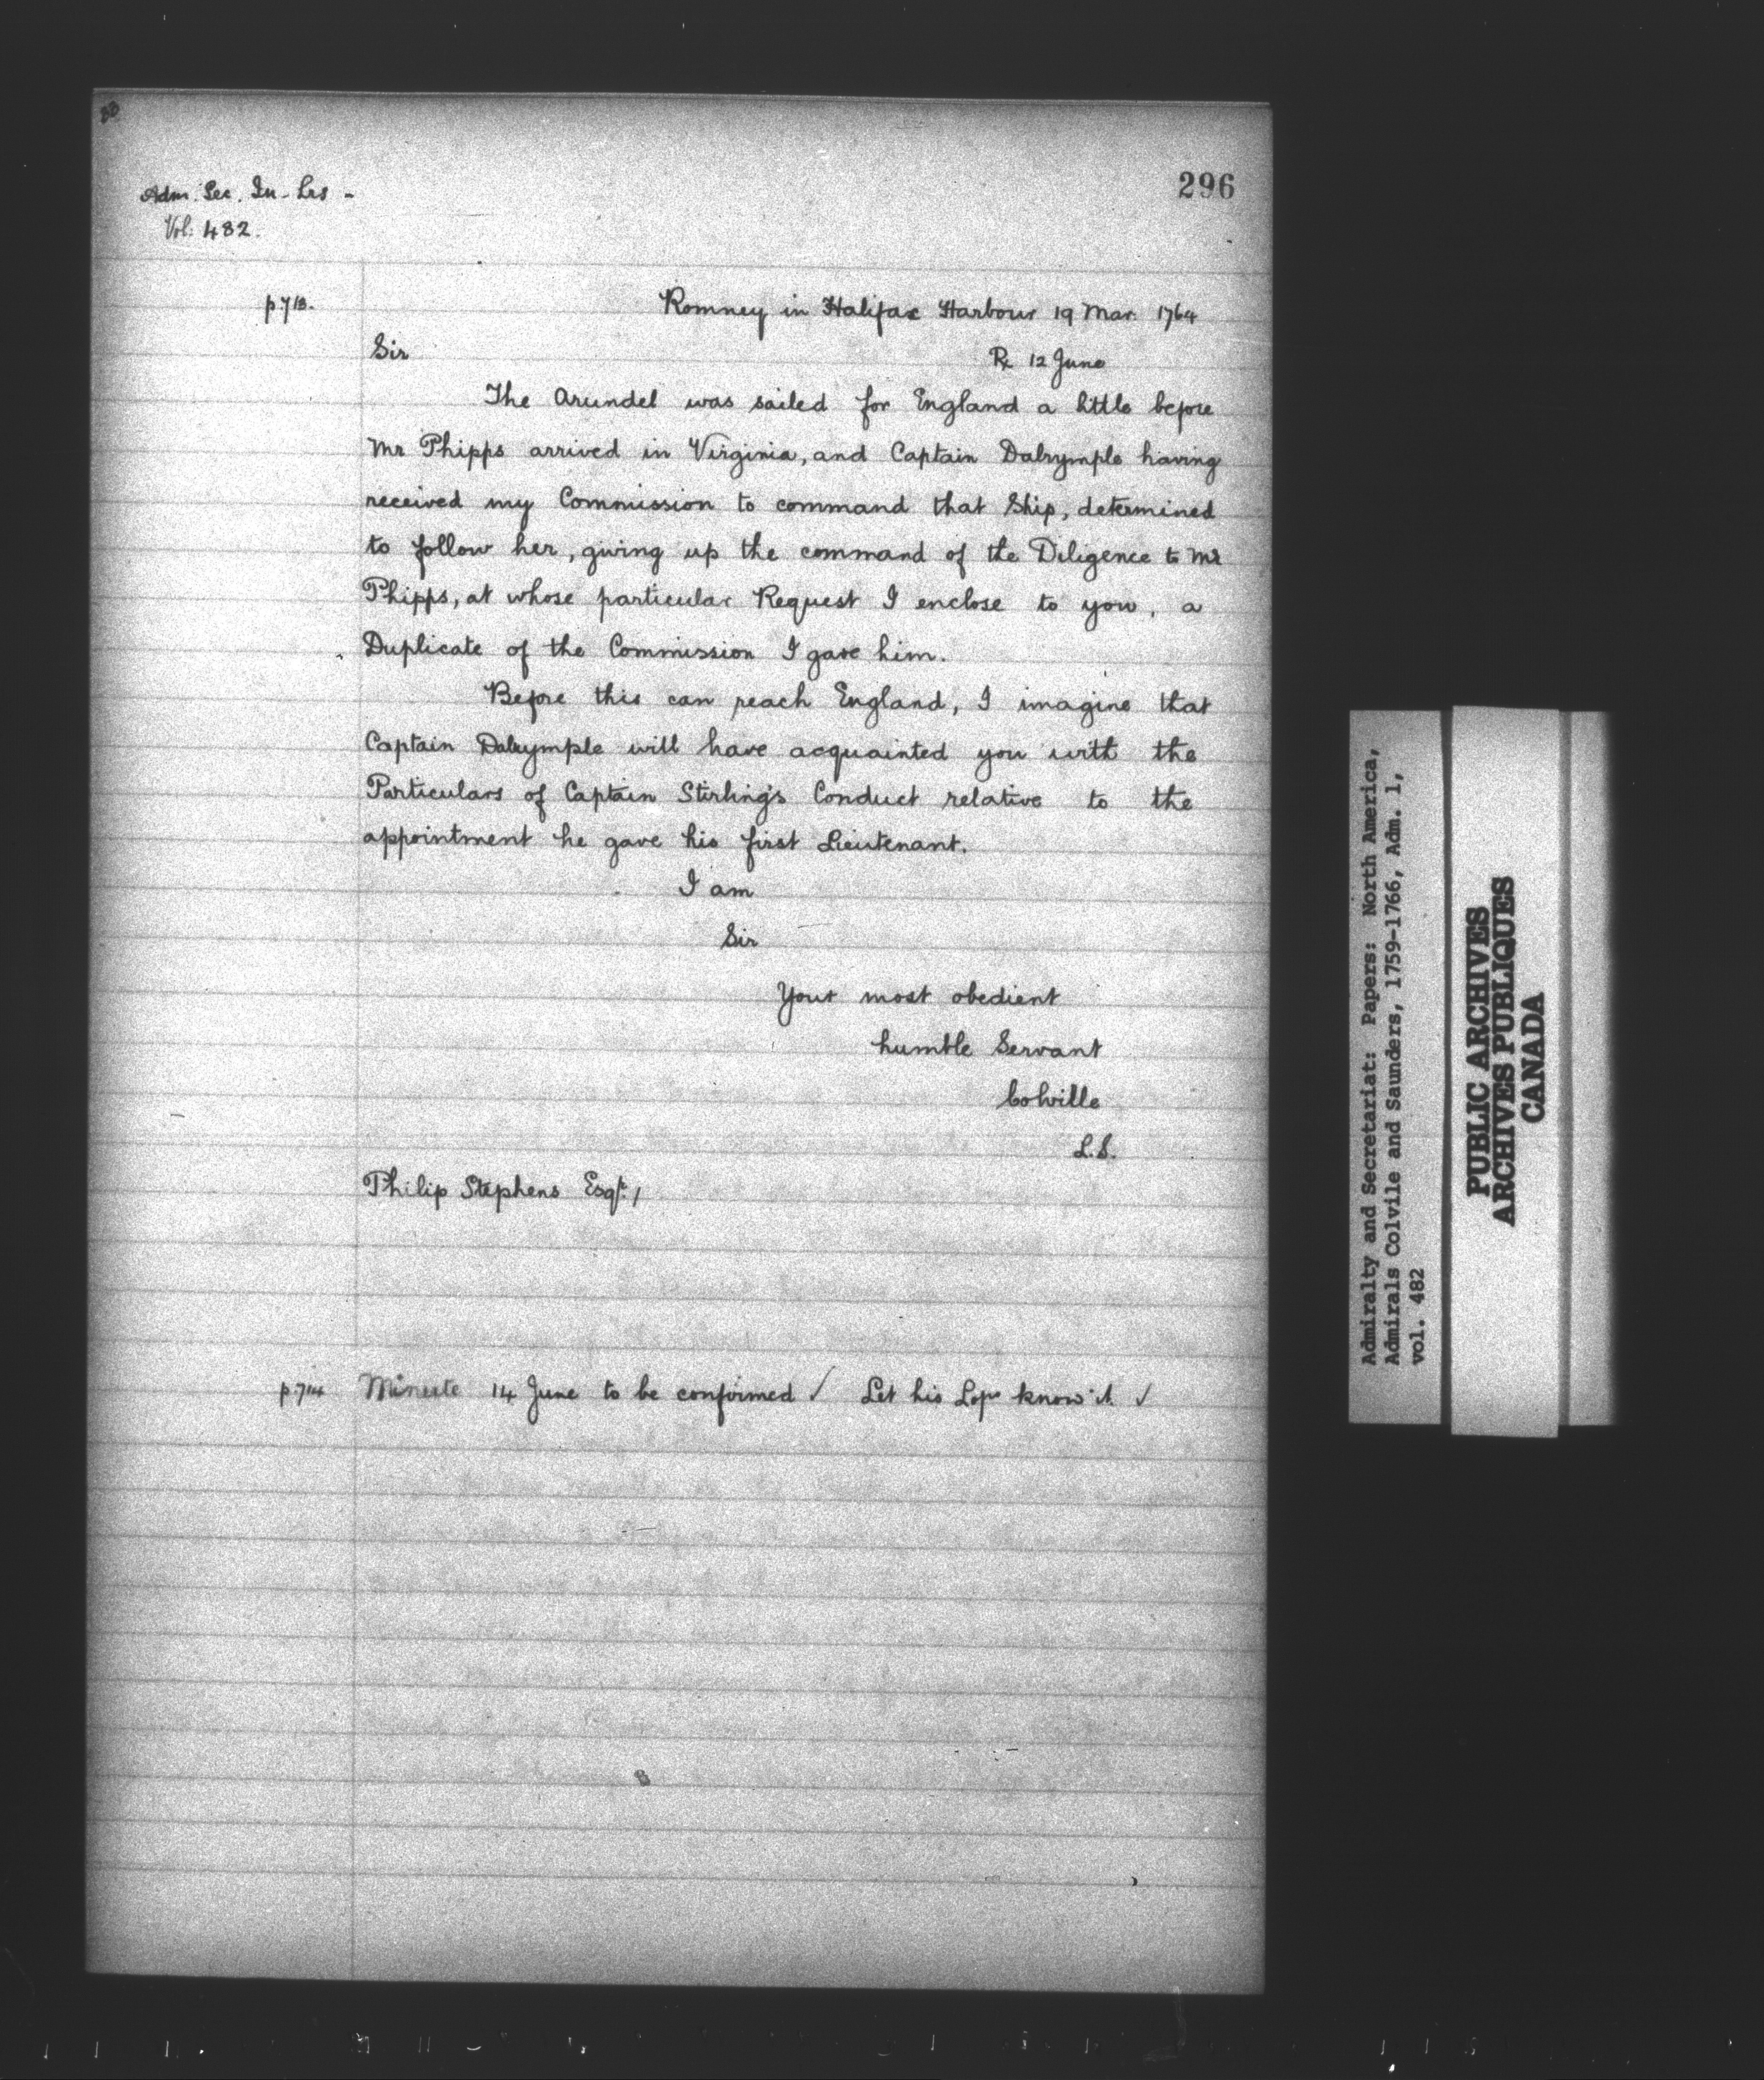 296
Adm. Sec. In-Lrs -
Vol: 482.
p.713.
Romney in Halifax Harbour 19 Mar. 1764
Sir
Rx 12 June
The Arundel was sailed for England a little before
Mr Phipps arrived in Virginia, and Captain Dalrymple having
received my Commission to command that Ship, determined
to follow her, giving up the command of the Diligence to Mr
Phipps, at whose particular Request I enclose to you, a
Duplicate of the Commission I gave him.
Before this can reach England, I imagine that
Captain Dalrymple will have acquainted you with the
Particulars of Captain Stirling's Conduct relative to the
appointment he gave his first Lieutenant.
I am
Sir
Your most obedient
humble Servant
Colville
L.S.
Philip Stephens Esqr. /
p.714 Minute 14 June to be confirmed ✓ Let his Lop know it ✓
Admiralty and Secretariat: Papers: North America,
Admirals Colvile and Saunders, 1759-1766, Adm. 1,
vol. 482
PUBLIC ARCHIVES
ARCHIVES PUBLIQUES
CANADA